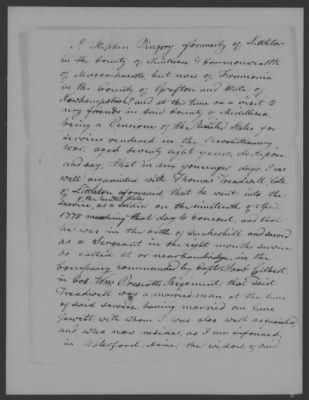 I Stephen Pingrey formerly of Littleton
in the County of Middlesex & Commonwealth
of Massachusetts but now of
in the County of Grafton and State of
Newhampshire and at this time on a visit to
my friends in said County of Middlesex
being a Pensioner of the United States for
services rendered in the Revolutionary
War, aged seventy eight years, do depose
and say, that in my younger days I was
well acquainted with Thomas Treadwell late
of Littleton aforesaid, that he went into the
of the United States
service, as a soldier on the nineteenth of April
1775 marching that day to Concord, and that
he was in the battle of Bunkerhill and served
as a Sergeant in the eight months service
so called at or near Cambridge, in the
Company commanded by Capt Gilbert
in Col. Wm Prescotts Regiment, that said
Treadwell was a married man at the time
of said service having married one Jane
Jewett, with whom I was also well acquainted
and who now resides, as I am informed,
in Waterford, Maine, the widow of said